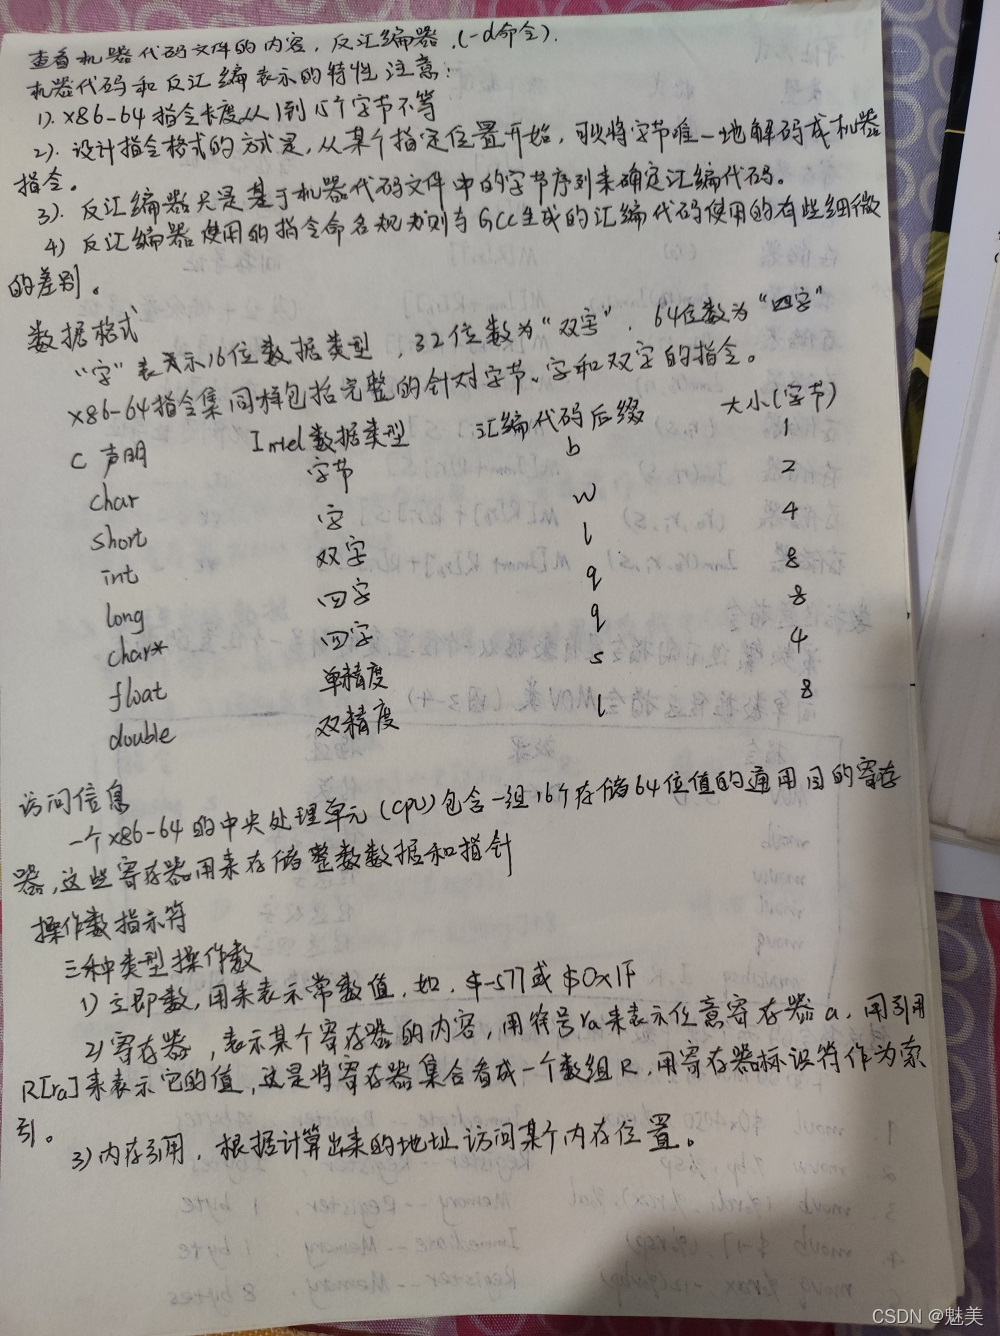 查看机器代码文件的内容，反汇编器.(-d命令).
机器代码和反汇编表示的特性注意:
1). x86-64指令长度从1到15个字节不等
2). 设计指令格式的方式是，从某个指定位置开始，可以将字节唯一地解码成机器
指令。
3). 反汇编器只是基于机器代码文件中的字节序列来确定汇编代码。
4) 反汇编器使用的指令命名规则与GCC生成的汇编代码使用的有些细微
的差别。
数据格式
"字"表示16位数据类型，32位数为"双字"，64位数为"四字"
x86-64指令集同样包括完整的针对字节、字和双字的指令。
C 声明 Intel数据类型 汇编代码后缀 大小(字节)
char 字节 b 1
short 字 w 2
int 双字 l 4
long 四字 q 8
char* 四字 q 8
float 单精度 s 4
double 双精度 l 8
访问信息
一个x86-64的中央处理单元(CPU)包含一组16个存储64位值的通用目的寄存
器，这些寄存器用来存储整数数据和指针
操作数指示符
三种类型操作数
1) 立即数，用来表示常数值，如，$-577或$0x1F
2) 寄存器，表示某个寄存器的内容，用符号ra来表示任意寄存器a，用引用
R[ra]来表示它的值，这是将寄存器集合看成一个数组R，用寄存器标识符作为索
引。
3) 内存引用，根据计算出来的地址访问某个内存位置。
CSDN @魅美